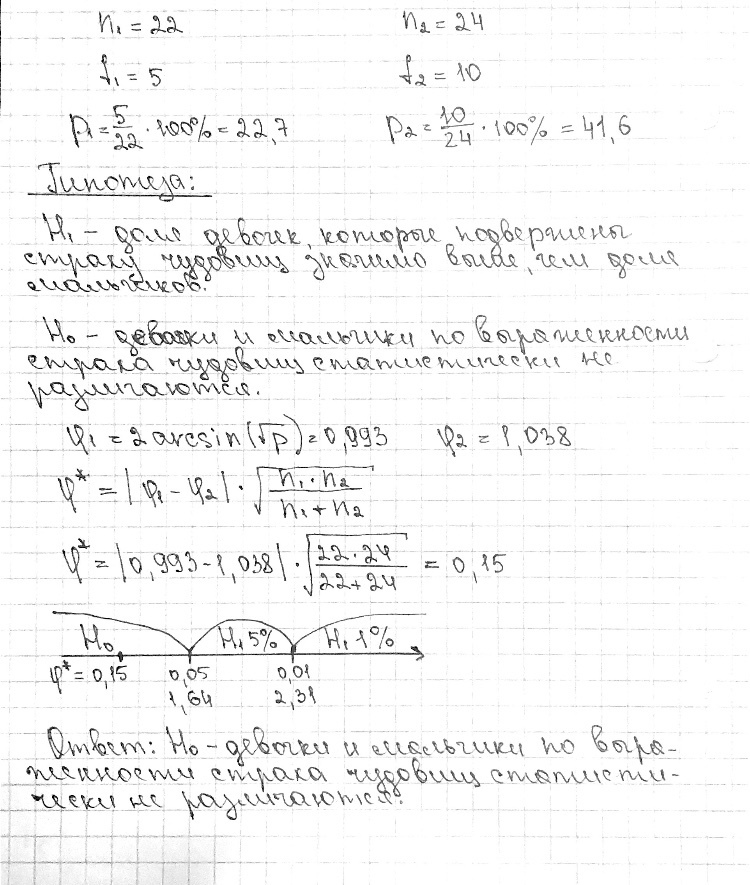 n₁ = 22 n₂ = 24
f₁ = 5 f₂ = 10
p₁ = 5/22 · 100% = 22,7 p₂ = 10/24 · 100% = 41,6
Гипотеза:
H₁ – доля девочек, которые подвержены
страху чудовищ значимо выше, чем доля
мальчиков.
H₀ – девочки и мальчики по выраженности
страха чудовищ статистически не
различаются.
φ₁ = 2 arcsin(√p) = 0,993 φ₂ = 1,038
φ* = |φ₁ – φ₂| · √(n₁ · n₂ / n₁ + n₂)
φ* = |0,993 – 1,038| · √(22 · 24 / 22 + 24) = 0,15
H₀ H₁ 5% H₁ 1%
φ* = 0,15 0,05 0,01
1,64 2,31
Ответ: H₀ – девочки и мальчики по выра-
женности страха чудовищ статисти-
чески не различаются.